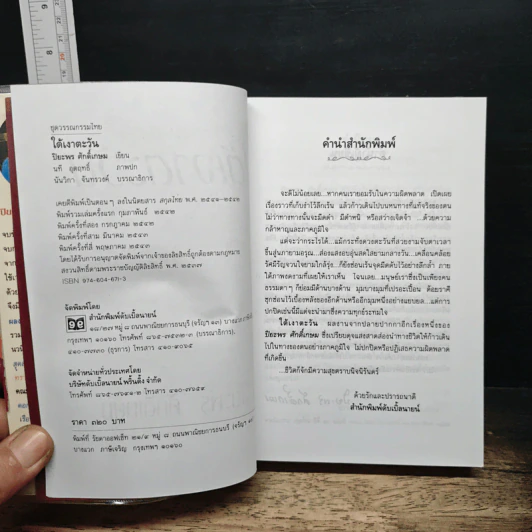 ชุดวรรณกรรมไทย
ใต้เงาตะวัน
ปิยะพร ศักดิ์เกษม เขียน
นที อุตฤทธิ์ ภาพปก
นันวิภา จันทรวงค์ บรรณาธิการ
เคยตีพิมพ์เป็นตอน ๆ ลงในนิตยสาร สกุลไทย พ.ศ. ๒๕๔๑-๒๕๔๒
พิมพ์รวมเล่มครั้งแรก กุมภาพันธ์ ๒๕๔๒
พิมพ์ครั้งที่สอง กรกฎาคม ๒๕๔๒
พิมพ์ครั้งที่สาม มีนาคม ๒๕๔๓
พิมพ์ครั้งที่สี่ พฤษภาคม ๒๕๔๓
โดยได้รับการอนุญาตจัดพิมพ์จากเจ้าของลิขสิทธิ์ถูกต้องตามกฎหมาย
สงวนลิขสิทธิ์ตามพระราชบัญญัติลิขสิทธิ์ พ.ศ. ๒๕๓๗
ISBN 974-604-671-3
จัดพิมพ์โดย
สำนักพิมพ์ดับเบิ้ลนายน์
๑๘/๒๗ หมู่ ๘ ถนนพาณิชยการธนบุรี (จรัญฯ ๑๓) บางแวก
กรุงเทพฯ ๑๐๑๖๐ โทรศัพท์ (บรรณาธิการ),
(ธุรการ) โทรสาร
จัดจำหน่ายทั่วประเทศโดย
บริษัทดับเบิ้ลนายน์ พริ้นติ้ง จำกัด
โทรศัพท์ โทรสาร
ราคา ๓๒๐ บาท
พิมพ์ที่ หมู่ ๘ ถนนพาณิชยการธนบุรี (จรัญฯ ๑๓)
บางแวก ภาษีเจริญ กรุงเทพฯ ๑๐๑๖๐
คำนำสำนักพิมพ์
จะดีไม่น้อยเลย...หากคนเรายอมรับในความผิดพลาด เปิดเผย
เรื่องราวที่เก็บงำไว้ลึกเร้น แล้วก้าวเดินไปบนหนทางที่แท้จริงของตน
ไม่ว่าทางทางนั้นจะมืดดำ มีตำหนิ หรือสว่างเจิดจ้า ...ด้วยความ
กล้าหาญและภาคภูมิใจ
แต่จะว่ากระไรได้...แม้กระทั่งดวงตะวันที่สวยงามจับตาเวลา
ขึ้นสู่นภายามอรุณ...ส่องแสงอบอุ่นสดใสยามกลางวัน...เคลื่อนคล้อย
รัศมีวิญญาณใจยามใกล้รุ่ง...ก็ยังซ่อนเร้นจุดมืดดับไว้อย่างลึกล้ำ ภาย
ใต้ภาพงดงามที่เผยให้เราเห็น ไฉนเลย...มนุษย์เราซึ่งเป็นเพียงคน
ธรรมดาๆ ก็ย่อมมีด้านบางด้าน มุมบางมุมที่เปรอะเปื้อน ด้อยราคี
ซุกซ่อนไว้เบื้องหลังของอีกด้านหรืออีกมุมหนึ่งอย่างแยบยล...แต่การ
ปกปิดเช่นนี้มีแต่จะนำมาซึ่งความทุกข์ระทมใจ
ใต้เงาตะวัน ผลงานจากปลายปากกาอีกเรื่องหนึ่งของ
ปิยะพร ศักดิ์เกษม ซึ่งเปรียบดุจแสงสาดส่องนำทางชีวิตให้ก้าวเดิน
ไปในทางของตนอย่างภาคภูมิใจ ไม่ปกปิดหรือปฏิเสธความผิดพลาด
ที่เกิดขึ้น
...ชีวิตก็จักมีความสุขตราบนิจนิรันดร์
ด้วยรักและปรารถนาดี
สำนักพิมพ์ดับเบิ้ลนายน์
9
8